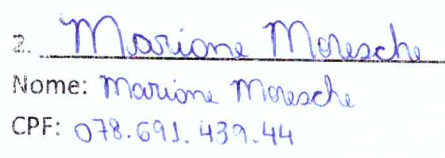 2. Marione Moresche
Nome: Marione Moresche
CPF: 078.691.439.44